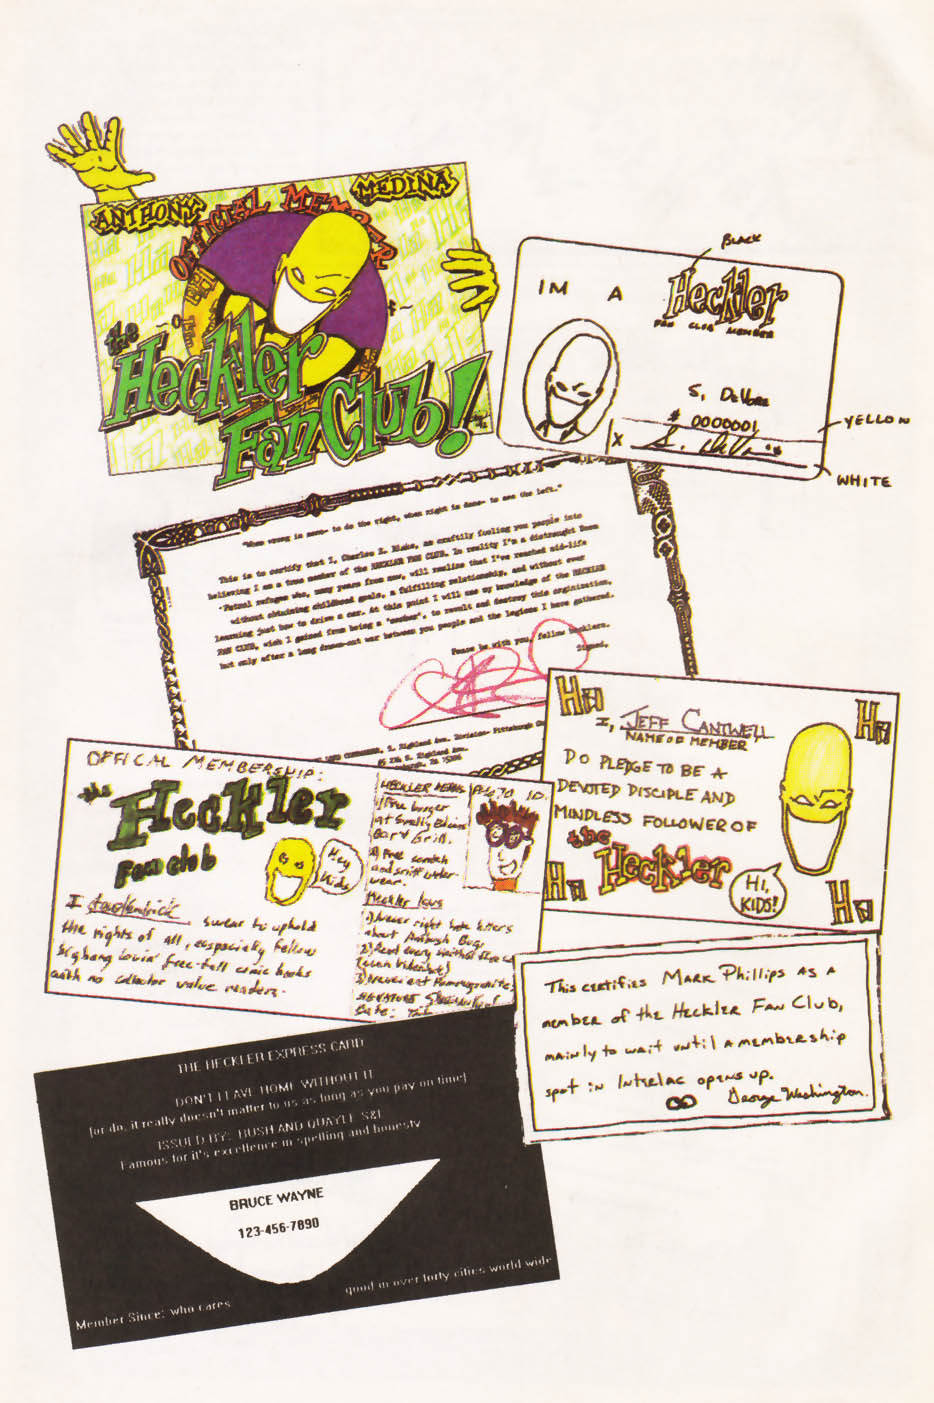 ANTHONY MEDINA
OFFICIAL MEMBER
the
Heckler
Fan Club!
BLACK
IM A Heckler
FAN CLUB MEMBER
S. DeVore
# 0000001
X
YELLOW
WHITE
"When wrong is done to do the right, when right is done to use the left."
This is to certify that I, Charles Z. Blake, am craftily fooling you people into
believing I am a true member of the HECKLER FAN CLUB. In reality I'm a distraught Doom
Patrol refugee who, many years from now, will realize that I've reached mid-life
without obtaining childhood goals, a fulfilling relationship, and without ever
learning just how to drive a car. At this point I will use my knowledge of the HECKLER
FAN CLUB, wich I gained from being a "member", to revolt and destroy this orginization,
but only after a long drawn-out war between you people and the legions I have gathered.
Peace be with you, fellow hecklers.
Signed,
S. Highland Ave. Division- Pittsburgh
S. Highland Ave.
HA HA
I, JEFF CANTWELL
NAME OF MEMBER
DO PLEDGE TO BE A
DEVOTED DISCIPLE AND
MINDLESS FOLLOWER OF
the
Heckler
HI,
KIDS!
HA HA
OFFICAL MEMBERSHIP:
the
Heckler
Fan club
Hey
Kids
I swear to uphold
the rights of all, especially fellow
bighang lovin' free-fall comic books
with no collector value readers.
HECKLER MEMBS
1) Free burger
at
Bar & Grill.
2) Free scratch
and sniff under
wear.
Heckler laws
1) Never right hate letters
about Ambush Bug.
2) Read every
(even
3) Never eat Pommegranites.
SIGNATURE
Date:
This certifies Mark Phillips as a
member of the Heckler Fan Club,
mainly to wait until a membership
spot in Interlac opens up.
George Washington.
THE HECKLER EXPRESS CARD
DON'T LEAVE HOME WITHOUT IT
(or do, it really doesn't matter to us as long as you pay on time)
ISSUED BY: BUSH AND QUAYLE S&L
Famous for it's excellence in spelling and honesty
BRUCE WAYNE
123-456-7890
good in over forty cities world wide
Member Since: who cares